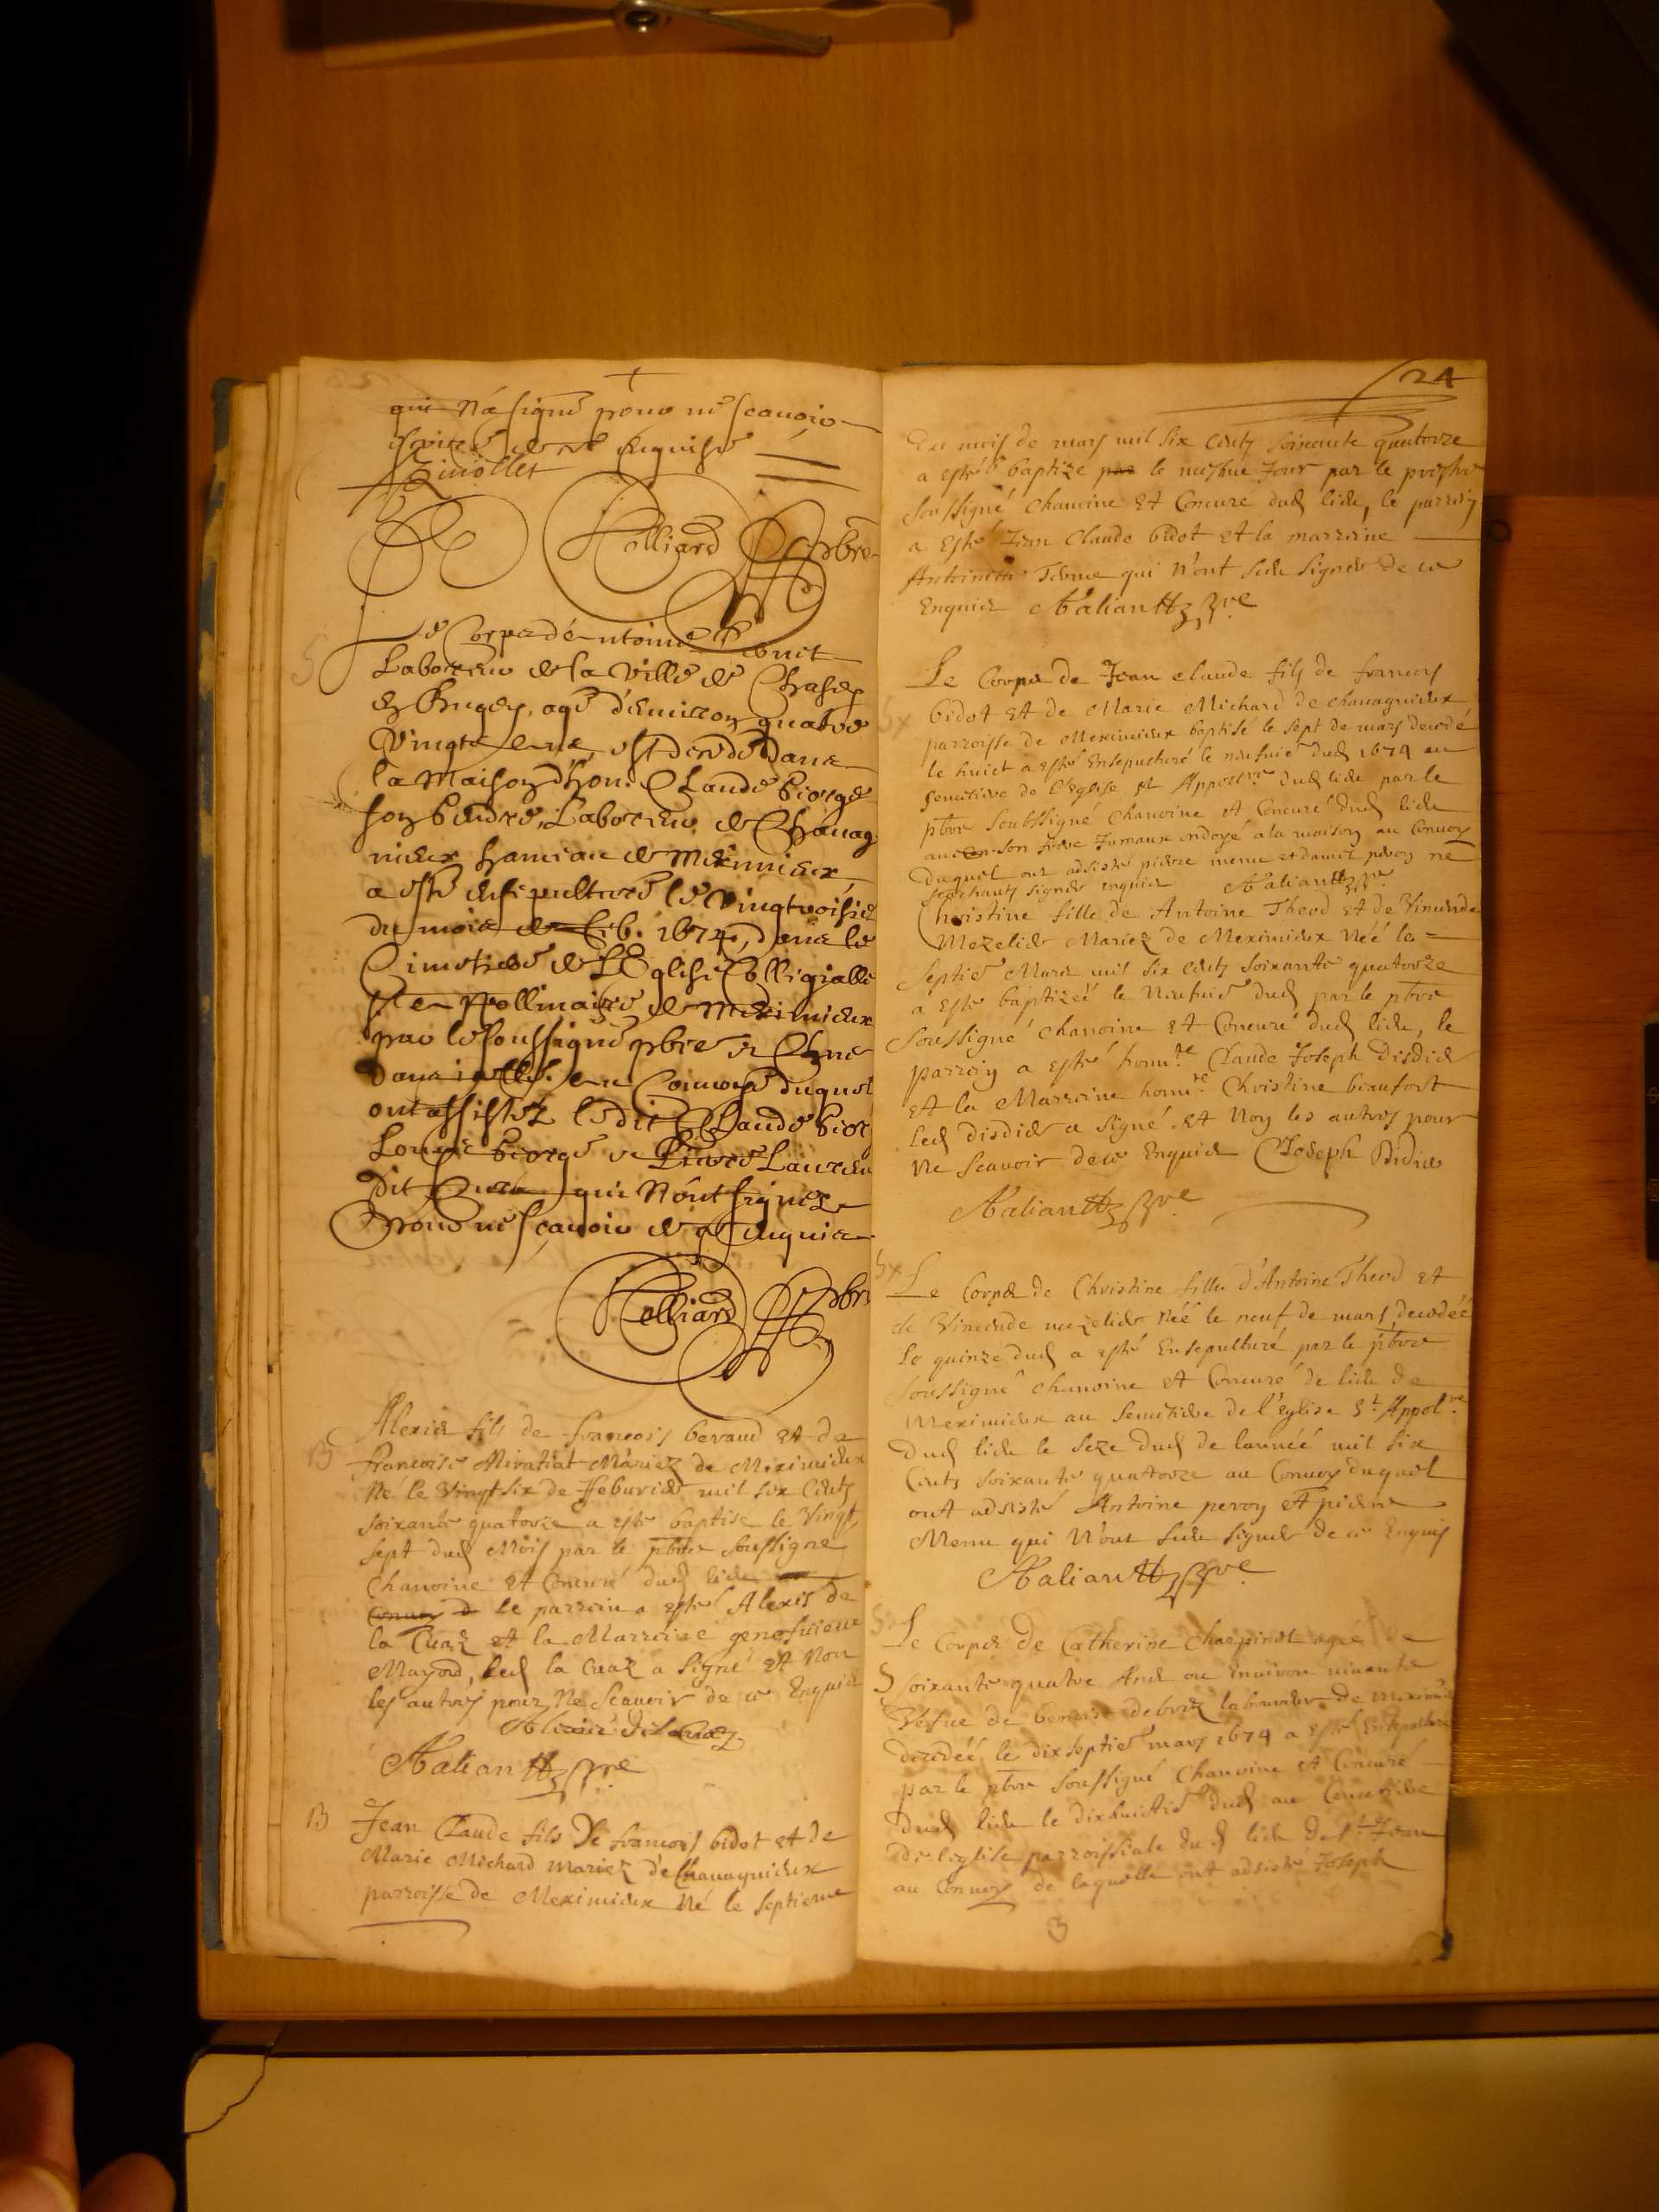 qui n'a signé pour ne scavoir
de ce enquise
Rolliard pbre
S
Le Corps d'Antoine
Laboreur de la Ville de
en Bugey, agé d'environ quatre
Vingts ans, est decedé dans
la maison d'hon. Claude George
son gendre, Laboreur de Chavag
nieux hameau de Meximieux
a esté ensepulturé le Vingtroisie
du mois de Feb. 1674, dans le
Cimetiere de L'Eglise Collegialle
St Appollinaire de Meximieux
par le soussigné pbre et Chne
dans icelle. au Convoy duquel
ont assistez ledit Claude Geor
Louis George et Pierre Lauren
dit qui n'ont signez
pour ne scavoir de ce enquis
Rolliard pbre
B
Alexis fils de francois beraud Et de
francoise Miratiat Mariez de Meximieux
Né le Vingt six de Feburier mil six Cents
soixante quatorze a esté baptise le Vingt
sept dud Mois par le pbtre soussigné
Chanoine Et Concuré dud lieu
Convoy d Le parrein a esté Alexis de
la Cuaz Et la Marreine
Mayord, led la Cuaz a signé Et Non
les autres pour Ne Scavoir de ce Enquis
Alexis de la Cuaz
B
Jean Claude fils De francois bidot Et de
Marie Michard mariez de Chavagnieux
parroisse de Meximieux Né le septieme
24
Du mois de mars mil six Cents soixante quatorze
a esté baptize par le mesme Jour par le prestre
soussigné Chanoine Et Concure dud lieu, le parrein
a Esté Jean Claude bidot Et la marreine
Antoinette qui N'ont sceu signer de ce
Enquis
Le Corps de Jean Claude fils de francois
Sx
bidot Et de Marie Michard de Chavagnieux
parroisse de Meximieux baptisé le sept de mars decedé
le huict a esté Ensepulturé le neufuie dud 1674 au
semetiere de l'Eglise st Appolre dud lieu par le
pbtre soubsigné Chanoine Et Concuré dud lieu
avec son frere Jumeaux ondoyé a la maison au Convoy
duquel ont adsisté pierre menu et peroy ne
scachants signer enquis
Christine fille de Antoine Theod Et de Vincende
Mezelier Mariez de Meximieux Née le
septie Mars mil six Cents soixante quatorze
a esté baptizée le Neufuie dud par le pbtre
soussigné Chanoine Et Concuré dud lieu, le
parrein a esté honnte Claude Joseph Disdier
Et la Marreine honnte Christine beaufort
Led Disdier a signé Et Non les autres pour
Ne scavoir de ce Enquis CJoseph Didier
Sx
Le Corps de Christine fille d'Antoine Theod Et
de Vincende mezelier Née le neuf de mars decedée
Le quinze dud a esté Ensepulturé par le pbtre
soussigné Chanoine Et Concuré de lieu de
Meximieux au semetiere de l'Eglise St Appolre
Dud lieu le seze dud de l'année mil six
Cents soixante quatorze au Convoy duquel
ont adsisté Antoine peroy Et pierre
Menu qui N'ont sceu signer de ce Enquis
S
Le Corps de Catherine Charpinet agée de
S
soixante quatre Ans ou Environ vivante
Vefue de benoist laboureur de Meximie
decedée le dix septie mars 1674 a Esté Ensepulturé
par le pbtre soussigné Chanoine Et Concuré
Dud lieu le dixhuictie dud au Cemetiere
De l'eglise parroissiale dud lieu de St Jean
au Convoy de laquelle ont adsisté Joseph